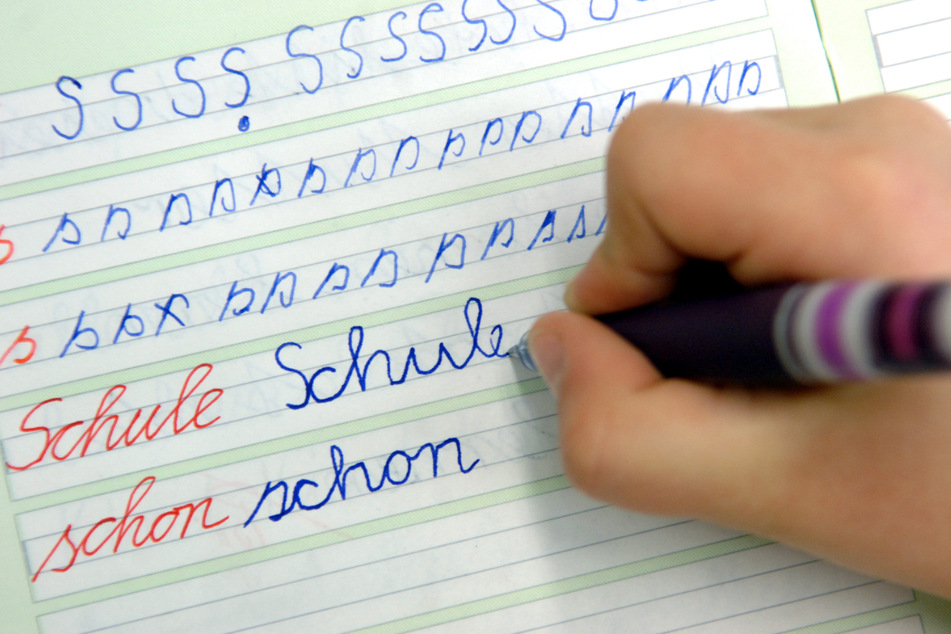 S S S S S S S S S S S S
s s s s s s s s s s s s s s s s s
s s s s s s s s s s s s
Schule Schule
schon schon